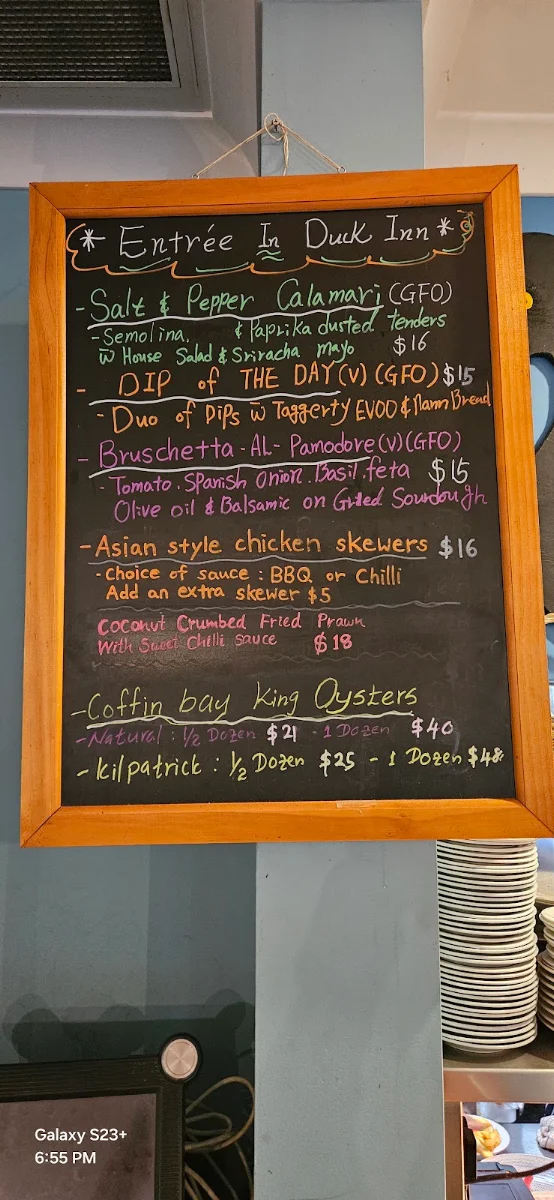 * Entrée In Duck Inn *
- Salt & Pepper Calamari (GFO)
- Semolina, & Paprika dusted tenders
w̄ House Salad & Sriracha mayo $16
- DIP of THE DAY (V) (GFO) $15
- Duo of Dips w̄ Taggerty EVOO & Naan Bread
- Bruschetta - AL - Pamodore (V) (GFO)
- Tomato. Spanish Onion. Basil. feta $15
Olive oil & Balsamic on Grilled Sourdough
- Asian style chicken skewers $16
- Choice of sauce : BBQ or Chilli
Add an extra skewer $5
Coconut Crumbed Fried Prawn
With Sweet Chilli sauce $18
- Coffin bay King Oysters
- Natural : 1/2 Dozen $21 - 1 Dozen $40
- kilpatrick : 1/2 Dozen $25 - 1 Dozen $48
Galaxy S23+
6:55 PM